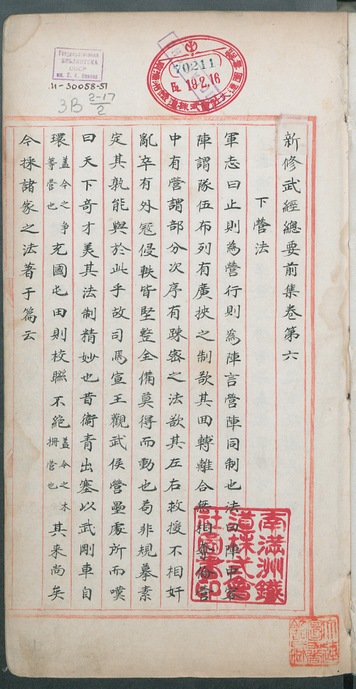 Государственная
БИБЛИОТЕКА
СССР
им. В. И. Ленина
И-30058-51
3В 2-17/2
70211
19.2.16
新修武經總要前集卷第六
下營法
軍志曰止則為營行則為陣言營陣同制也法曰陣中容
陣謂隊伍布列有廣挾之制欲其回轉離合無相
中有營謂部分次序有踈密之法欲其左右救援不相奸
亂卒有外冦侵軼皆堅整全備莫得而動也苟非規摹素
定其孰能與於此乎故司馬宣王觀武侯營壘處所而嘆
曰天下奇才美其法制精妙也昔衛青出塞以武剛車自
環蓋今之車營也充國屯田則校聯不絶蓋今之木柵營也其来尚矣
今採諸家之法著于篇云
南滿洲鐵
道株式會
社圖書印